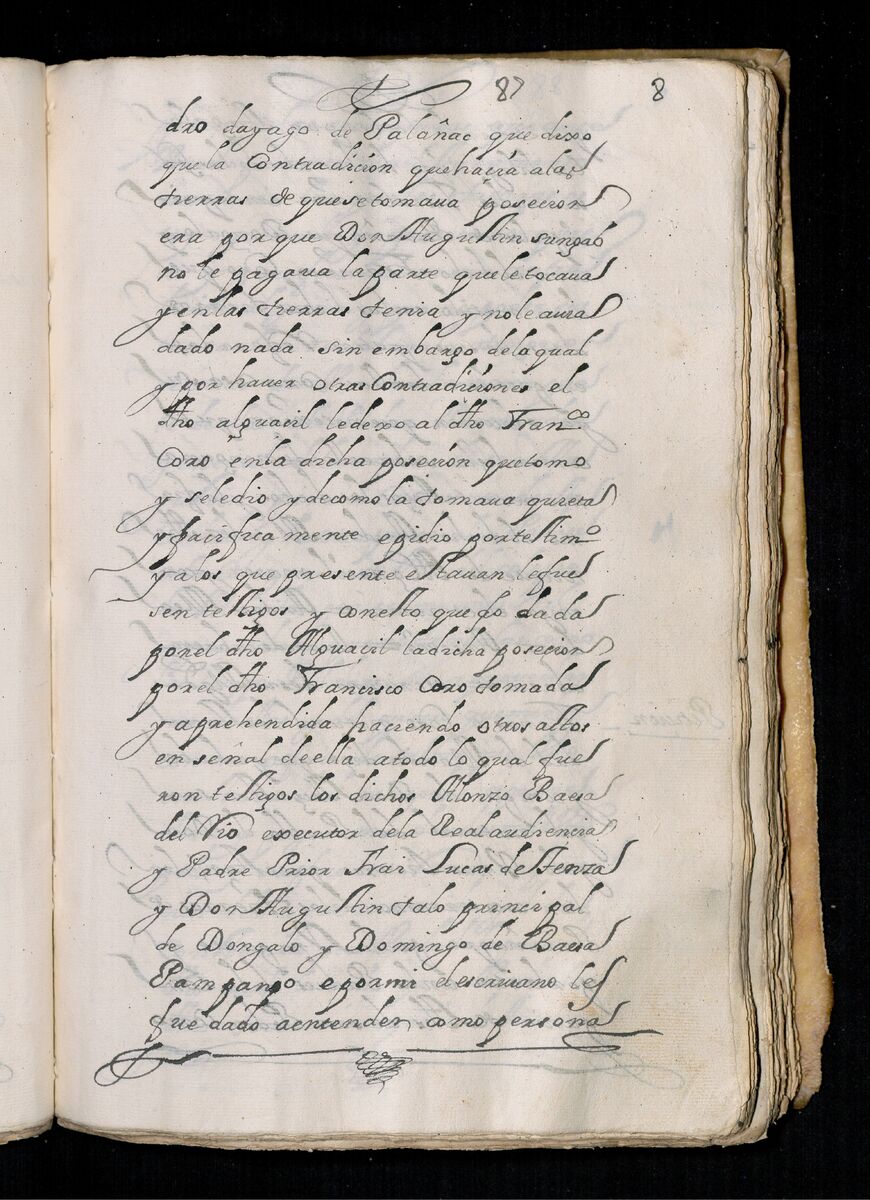 87 8
dro dayago de Palañac que dixo
que la Contradicion que hacia a las
tierras de que se tomaua posecion
era porque Don Augustin sungab
no le pagaua la parte que le tocaua
y en las tierras tenia y no le auia
dado nada sin embargo de la qual
y por hauer otras Contradiciones el
dho alguacil le dexo al dho Fran.co
Coro en la dicha posecion que tomo
y se le dio y de como la tomaua quieta
y pacificamente e pidio por testim.o
y a los que presente estauan le fue
sen testigos y con esto quedo dada
por el dho Alguacil la dicha posecion
por el dho Francisco Coro tomada
y aprehendida haciendo otros attos
en señal de ella a todo lo qual fue
ron testigos los dichos Alonzo Baesa
del Rio executor de la Real audiencia
y Padre Prior Frai Lucas de
y Don Augustin talo principal
de Dongalo y Domingo de Baesa
Pampango e por mi el escriuano les
fue dado a entender como persona